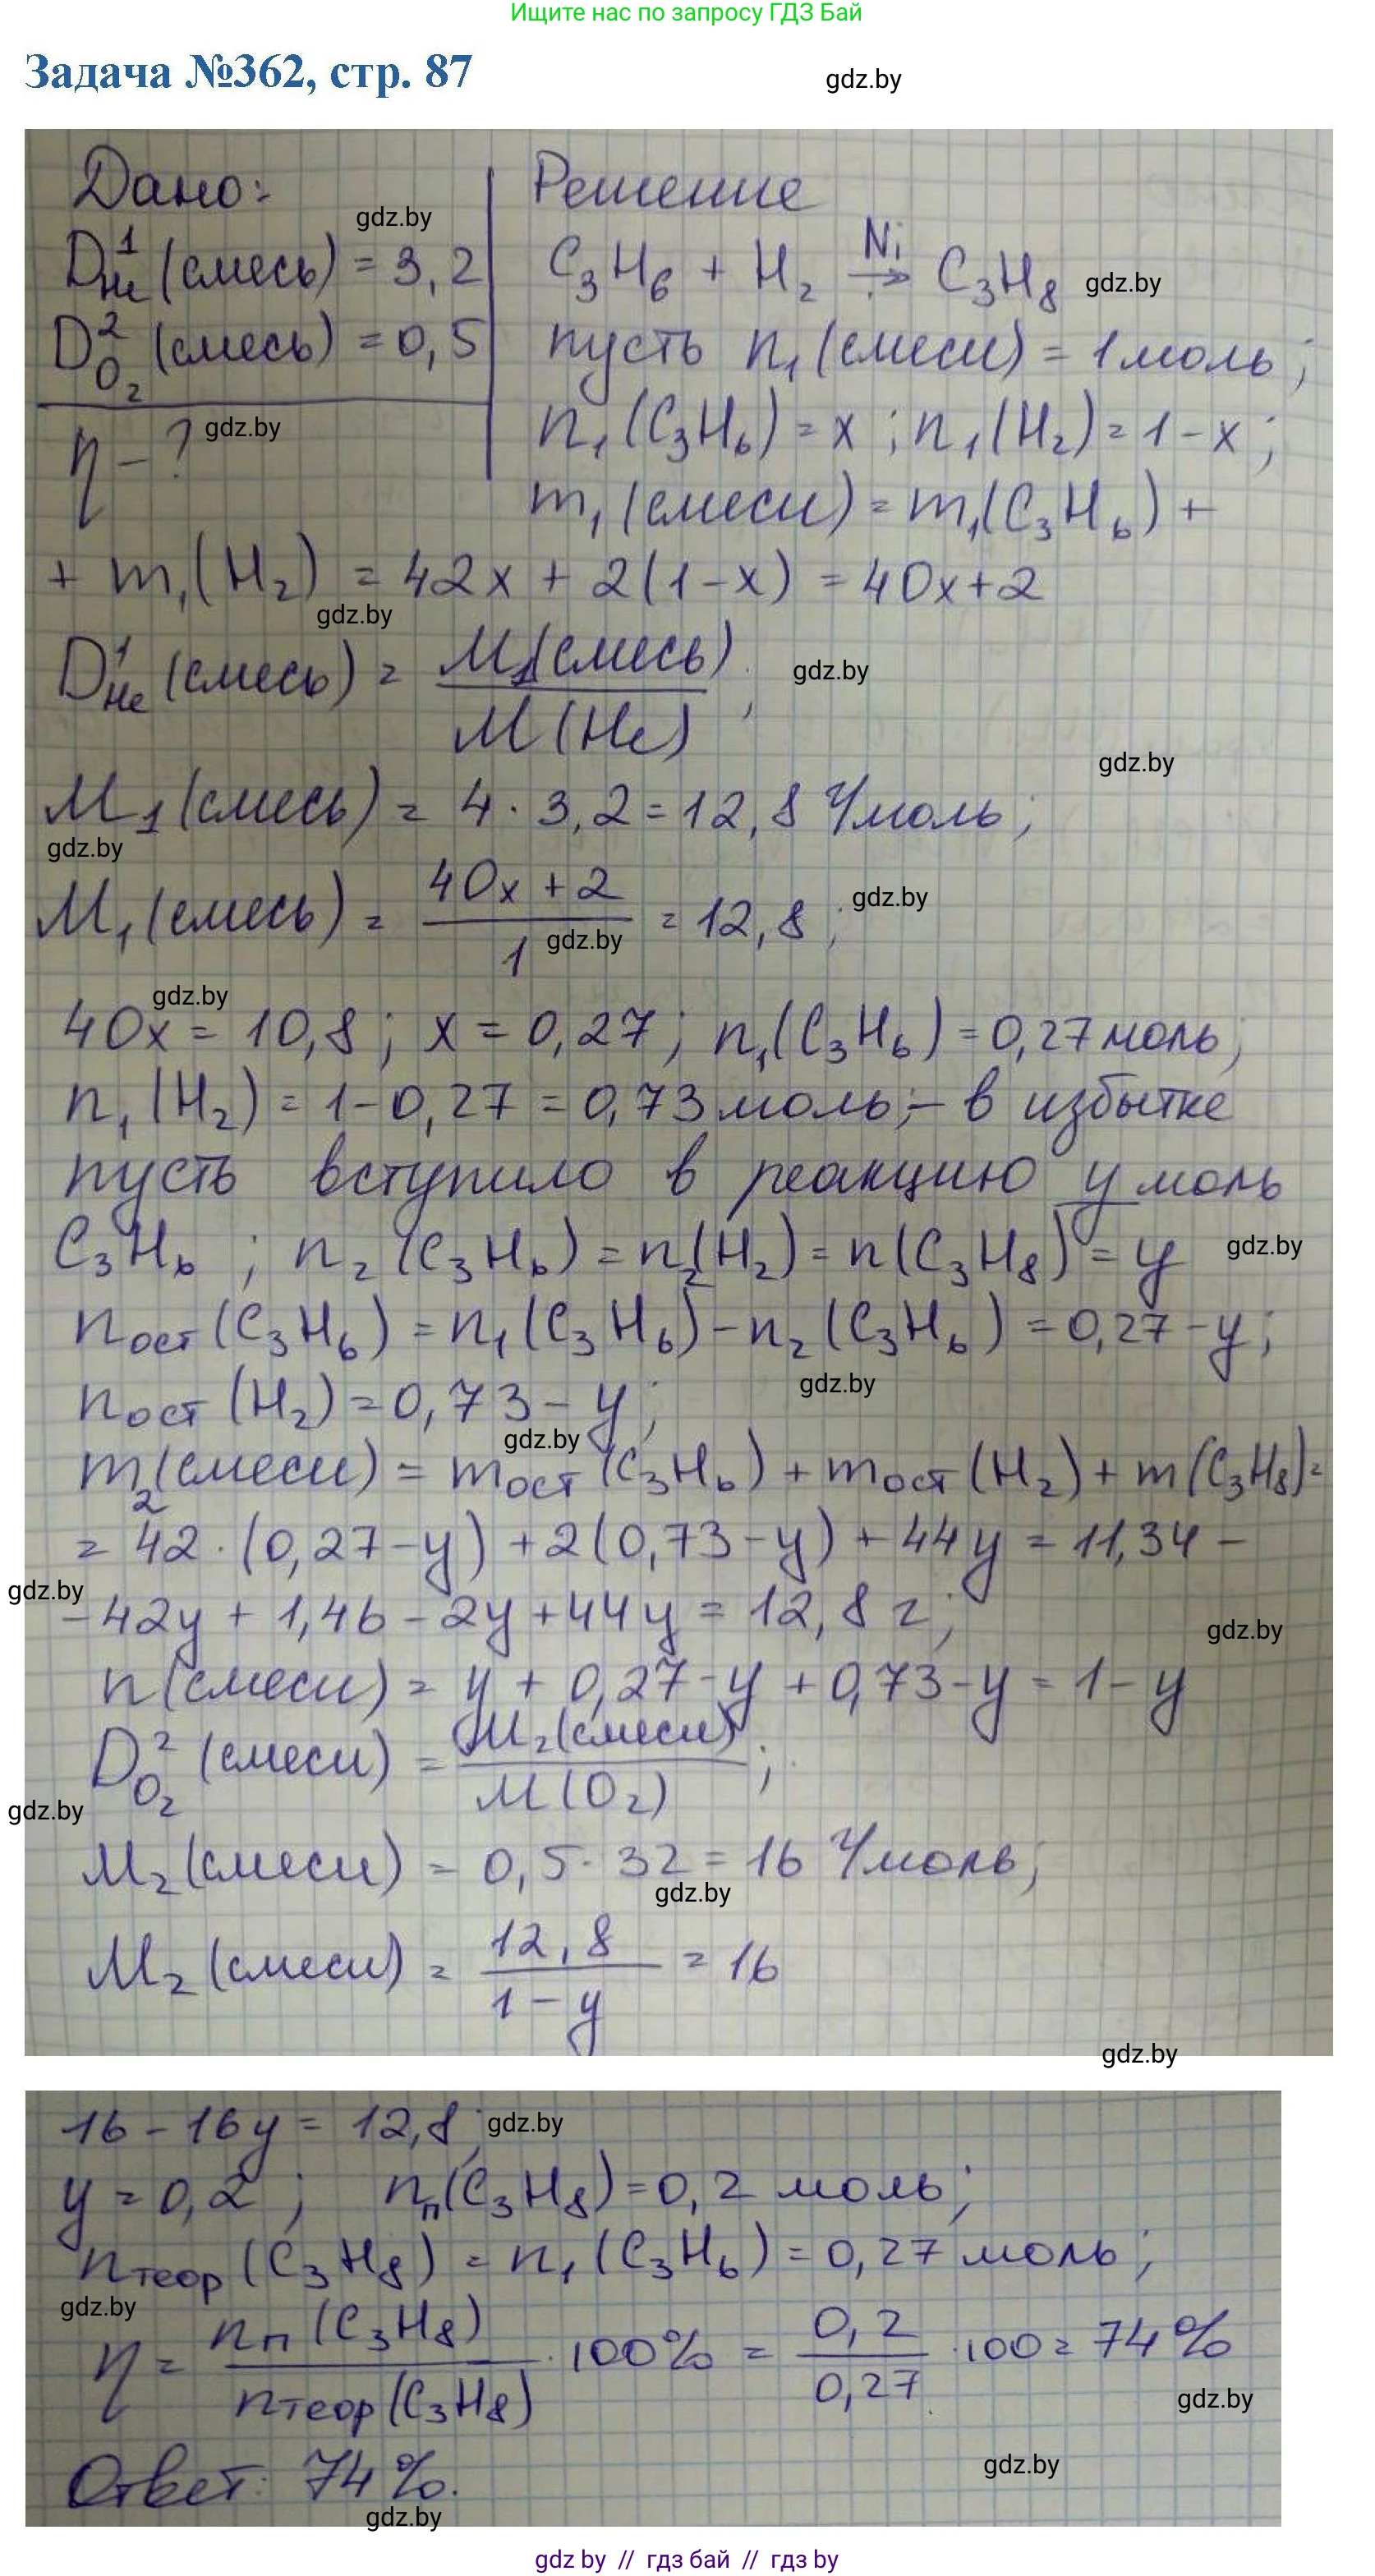 Ищите нас по запросу ГДЗ Бай
Задача №362, стр. 87
gdz.by
Дано:
gdz.by
D¹He (смесь) = 3,2
D²O₂ (смесь) = 0,5
gdz.by
η - ?
Решение
C₃H₆ + H₂ —Ni→ C₃H₈
gdz.by
пусть n₁(смеси) = 1 моль;
n₁(C₃H₆) = x; n₁(H₂) = 1-x;
m₁(смеси) = m₁(C₃H₆) +
+ m₁(H₂) = 42x + 2(1-x) = 40x+2
gdz.by
D¹He (смесь) = M₁(смесь) / M(He);
gdz.by
gdz.by
M₁(смесь) = 4 · 3,2 = 12,8 г/моль;
gdz.by
M₁(смесь) = (40x + 2) / 1 = 12,8;
gdz.by
gdz.by
gdz.by
40x = 10,8; x = 0,27; n₁(C₃H₆) = 0,27 моль;
n₁(H₂) = 1-0,27 = 0,73 моль; - в избытке
пусть вступило в реакцию y моль
C₃H₆; n₂(C₃H₆) = n₂(H₂) = n(C₃H₈) = y
gdz.by
nост(C₃H₆) = n₁(C₃H₆) - n₂(C₃H₆) = 0,27-y;
gdz.by
nост(H₂) = 0,73 - y;
gdz.by
m₂(смеси) = mост(C₃H₆) + mост(H₂) + m(C₃H₈) =
= 42·(0,27-y) + 2(0,73-y) + 44y = 11,34 -
gdz.by
- 42y + 1,46 - 2y + 44y = 12,8 г;
gdz.by
n(смеси) = y + 0,27-y + 0,73-y = 1-y
D²O₂ (смеси) = M₂(смеси) / M(O₂);
gdz.by
M₂(смеси) = 0,5·32 = 16 г/моль;
gdz.by
M₂(смеси) = 12,8 / (1-y) = 16
gdz.by
16 - 16y = 12,8;
gdz.by
y = 0,2; nп(C₃H₈) = 0,2 моль;
nтеор(C₃H₈) = n₁(C₃H₆) = 0,27 моль;
gdz.by
η = nп(C₃H₈) / nтеор(C₃H₈) · 100% = 0,2 / 0,27 · 100 = 74%
gdz.by
gdz.by
Ответ: 74%.
gdz.by
gdz by // гдз бай // гдз by